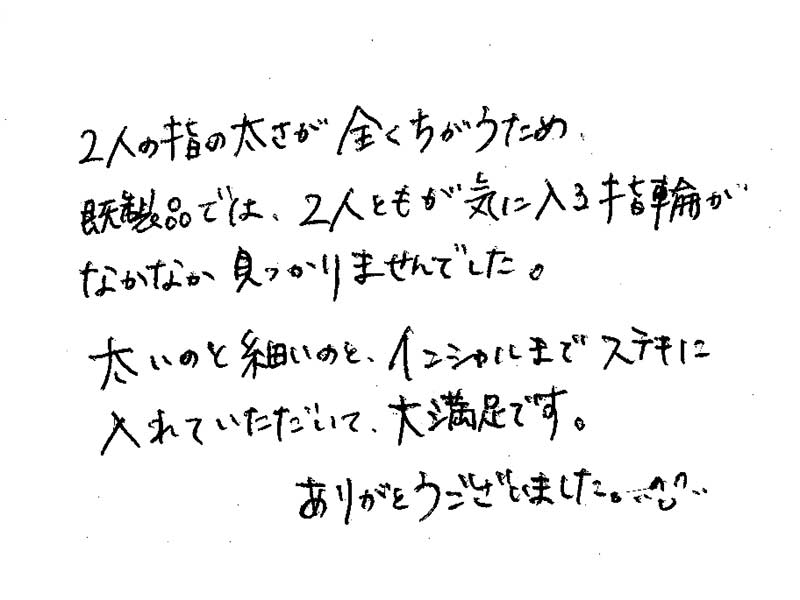 2人の指の太さが全くちがうため、
既製品では、2人ともが気に入る指輪が
なかなか見つかりませんでした。
太いのと細いのと、イニシャルまでステキに
入れていただいて、大満足です。
ありがとうございました。